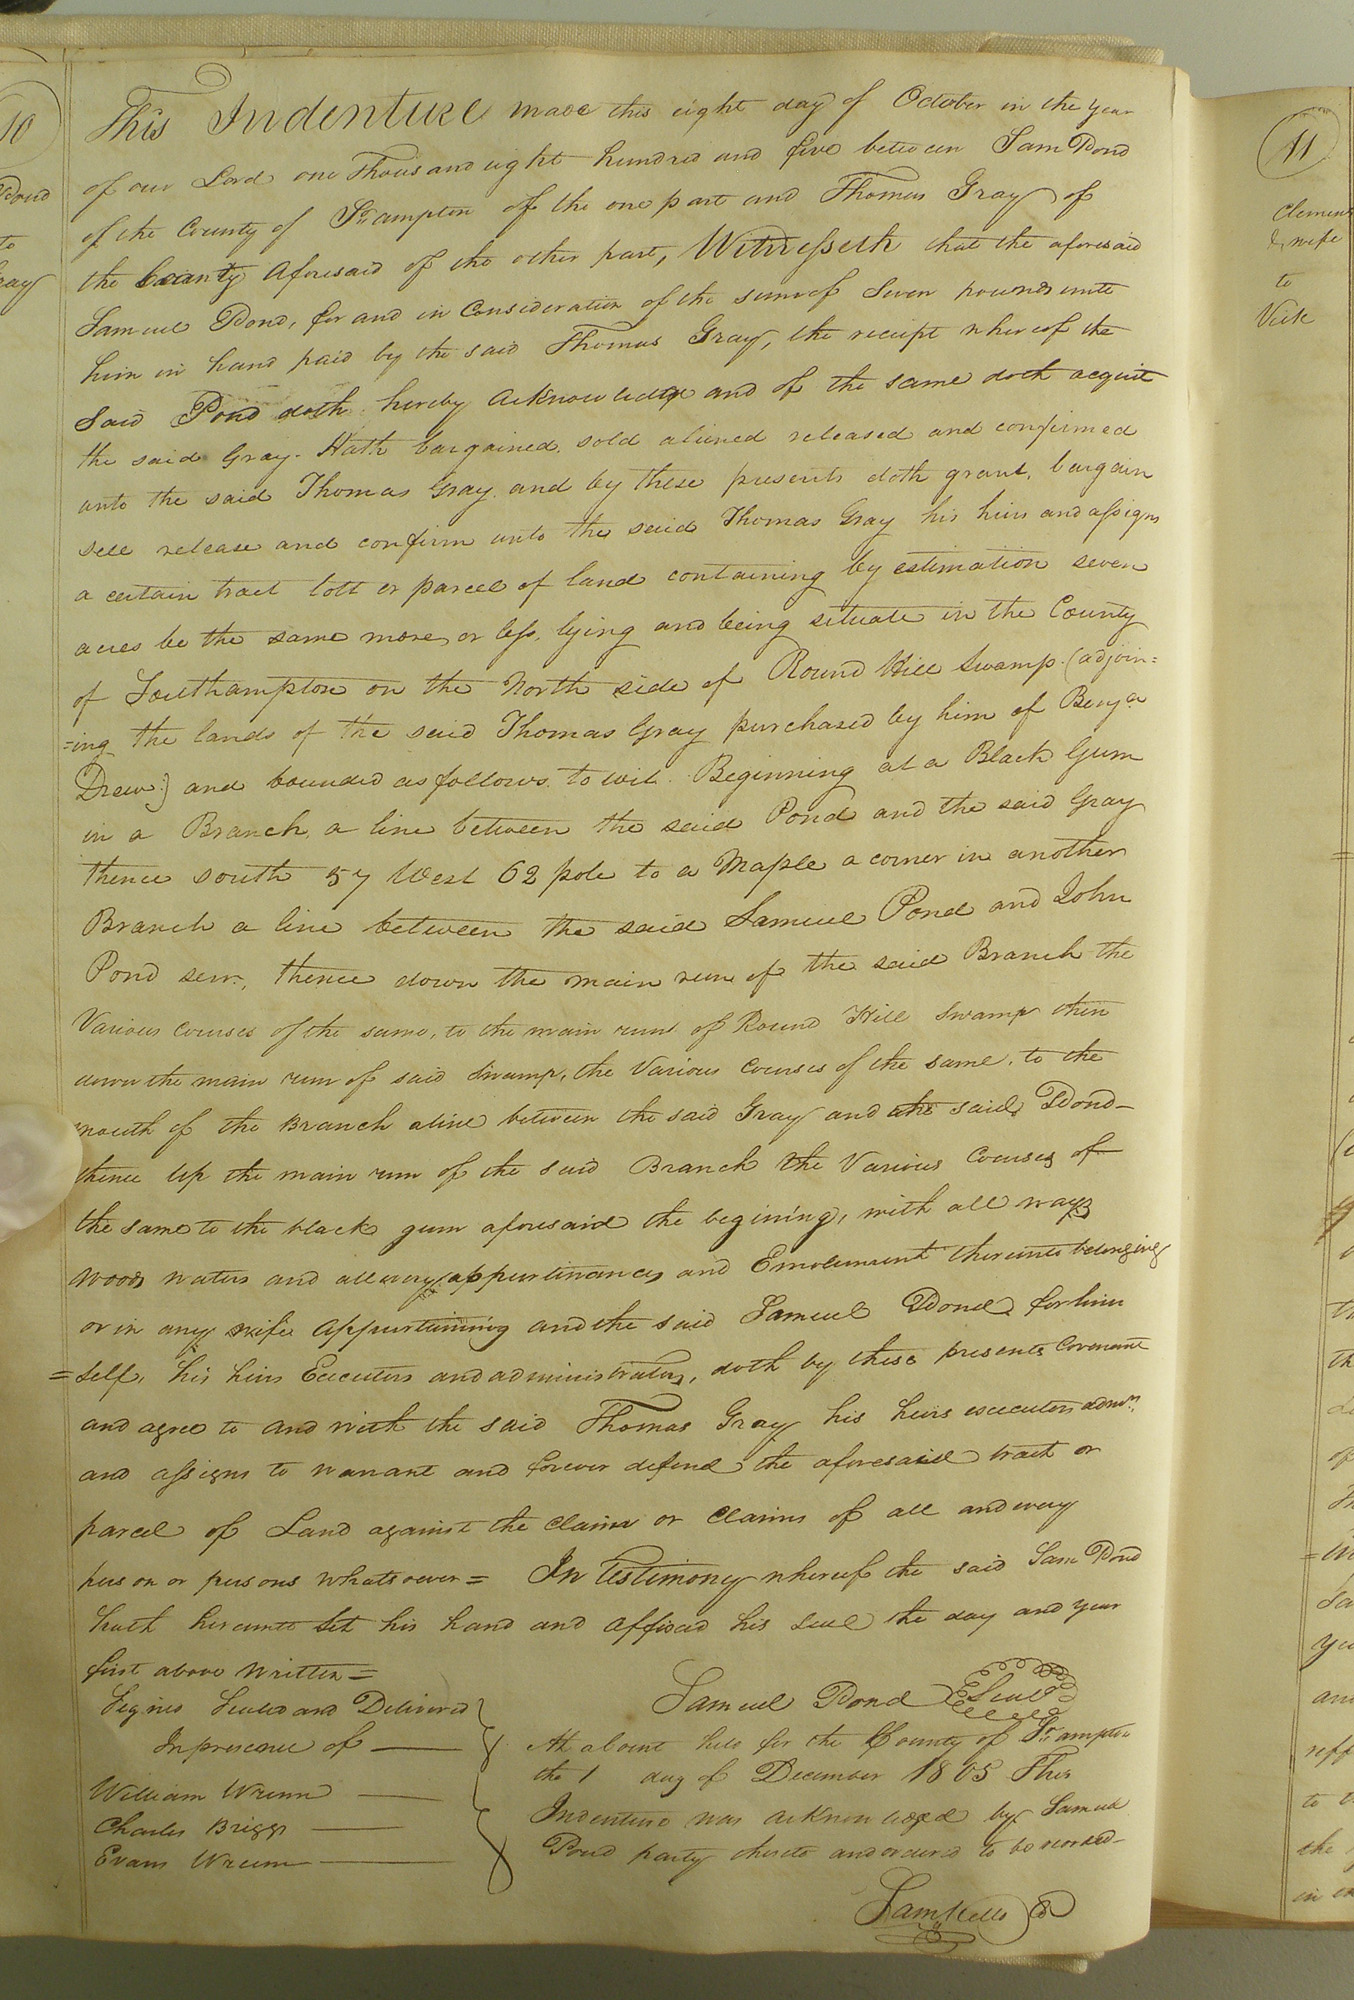 10
Pond
to
Gray
This Indenture made this eight day of October in the year
of our Lord one Thousand eight hundred and five between Sam Pond
of the County of So. ampton of the one part and Thomas Gray of
the County aforesaid of the other part, Witnesseth that the aforesaid
Samuel Pond, for and in Consideration of the sum of Seven pounds unto
him in hand paid by the said Thomas Gray, the receipt whereof the
Said Pond doth hereby Acknowledge and of the same doth acquit
the said Gray. Hath bargained, sold aliened released and confirmed
unto the said Thomas Gray, and by these presents doth grant, bargain
sell release and confirm unto the said Thomas Gray his heirs and assigns
a certain tract lott or parcel of land containing by estimation seven
acres be the same more or less, lying and being situate in the County
of Southampton on the North side of Round Hill Swamp (adjoin=
=ing the lands of the said Thomas Gray purchased by him of Benja
Drew) and bounded as follows, to wit. Beginning at a Black Gum
in a Branch, a line between the said Pond and the said Gray
thence south 57 West 62 pole to a Maple a corner in another
Branch a line between the said Samuel Pond and John
Pond senr, thence down the main run of the said Branch the
Various courses of the same, to the main run of Round Hill Swamp then
down the main run of said Swamp, the Various courses of the same, to the
mouth of the Branch aline between the said Gray and the said Pond-
thence Up the main run of the said Branch the Various Courses of
the same to the black gum aforesaid the begining, with all ways
woods waters and all every appurtinances and Emolument thereunto belonging
or in any wise Appurtaining and the said Samuel Pond, for him
=self, his heirs Executors and administrators, doth by these presents Covenant
and agree to and with the said Thomas Gray his heirs executors admrs.
and assigns to warrant and forever defend the aforesaid tract or
parcel of Land against the claim or claims of all and every
person or persons whatsoever = In Testimony whereof the said Sam Pond
hath hereunto Set his hand and affixed his seal the day and year
first above written =
Signed Sealed and Delivered
In presence of
William Wrenn
Charles Briggs
Evans Wrenn
Samuel Pond Seal
At a Court held for the County of So. ampton
the 1 day of December 1805 This
Indenture was acknowledged by Samuel
Pond party thereto and ordered to be recorded-
Sam Kello C
11
Clement
& wife
to
Vick